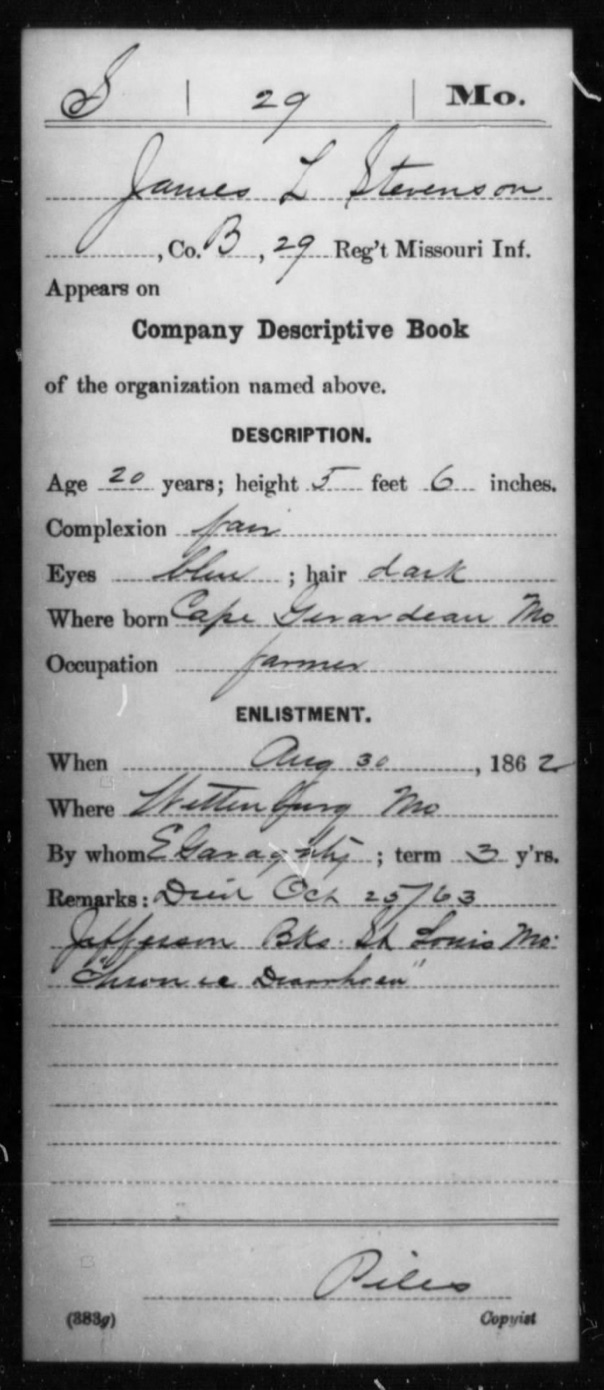 S | 29 | Mo.
James L Stevenson
, Co. B, 29 Reg't Missouri Inf.
Appears on
Company Descriptive Book
of the organization named above.
DESCRIPTION.
Age 20 years; height 5 feet 6 inches.
Complexion fair
Eyes blue ; hair dark
Where born Cape Gerardeau Mo
Occupation farmer
ENLISTMENT.
When Aug 30, 1862
Where Wittenburg Mo
By whom ; term 3 y'rs.
Remarks: Died Oct 25/63
Jefferson Bks. St Louis Mo.
"Chronic Diarrhoea"
Piles
(383g) Copyist